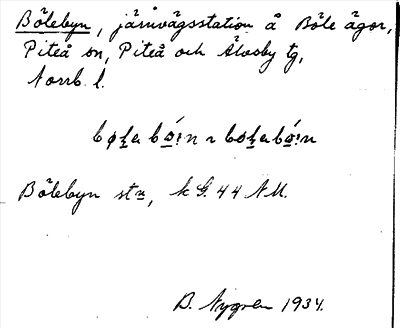 Bölebyn, järnvägsstation å Böle ägor,
Piteå sn, Piteå och Älvsby tg,
Norrb. l.
Bölebyn stn, k G. 44 NM.
B. Nygren 1934.